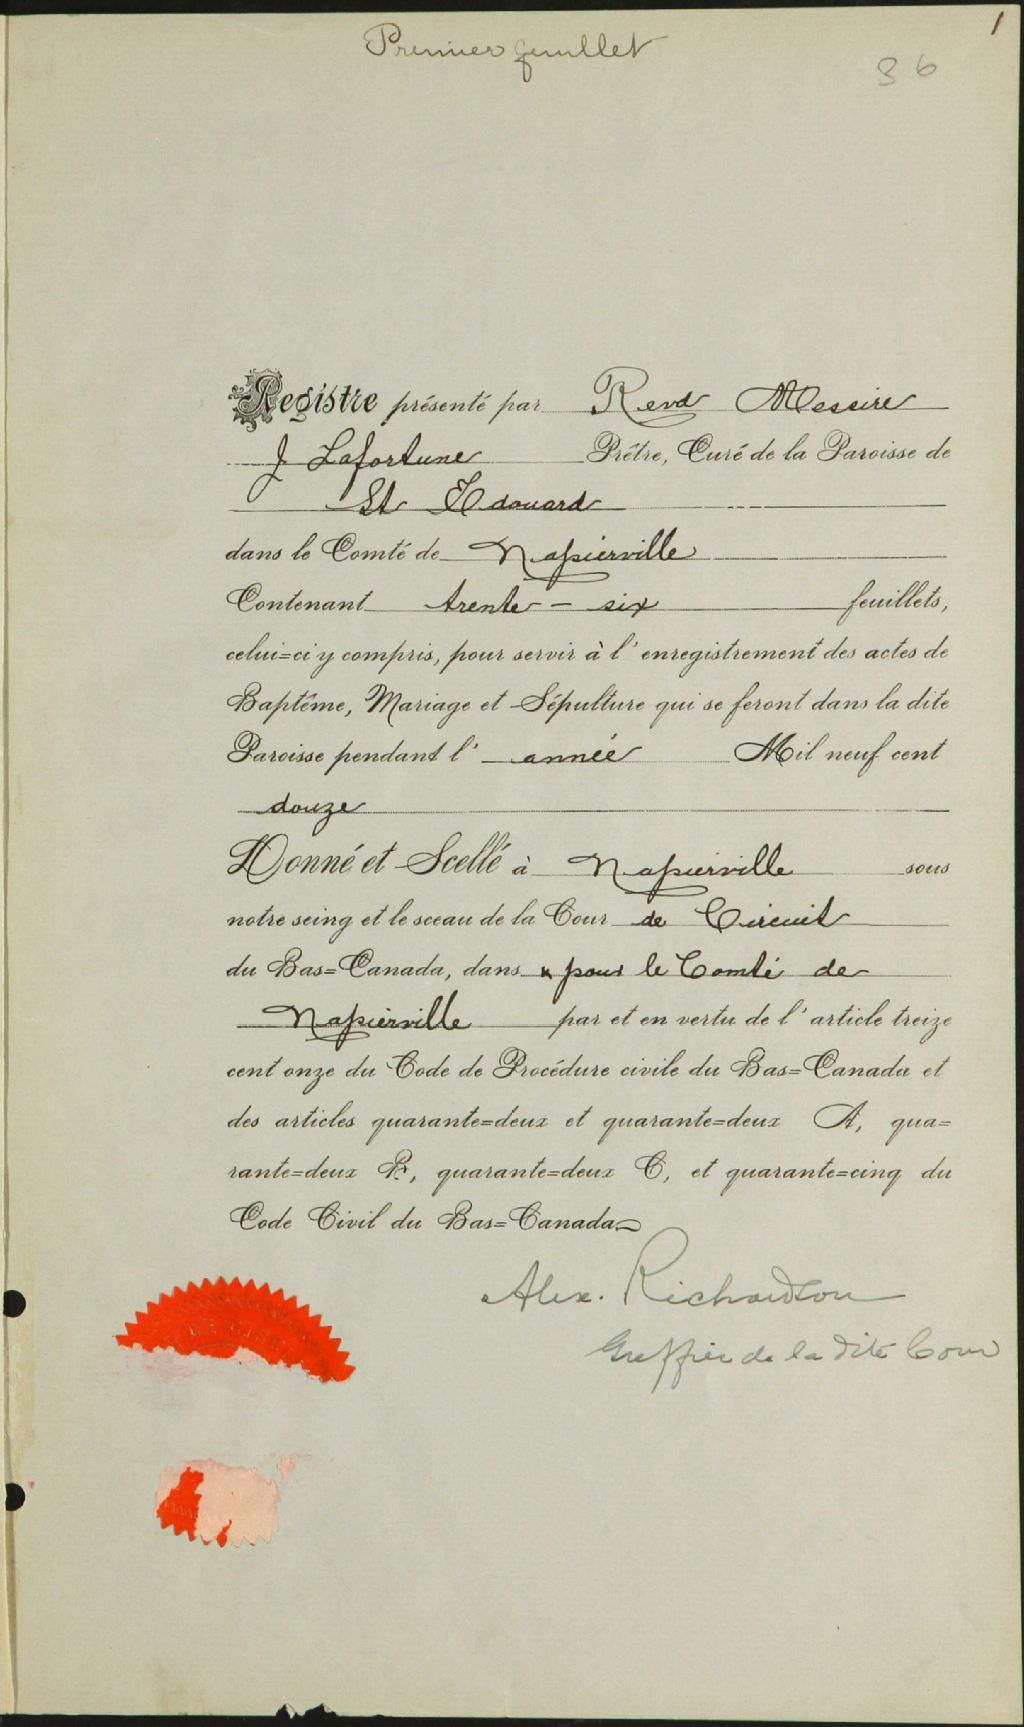 Premier feuillet
1
36
Registre présenté par Revd Messire
J Lafortune Prêtre, Curé de la Paroisse de
St Edouard
dans le Comté de Napierville
Contenant trente - six feuillets,
celui=ci y compris, pour servir à l'enregistrement des actes de
Baptême, Mariage et Sépulture qui se feront dans la dite
Paroisse pendant l'année Mil neuf cent
douze
Donné et Scellé à Napierville sous
notre seing et le sceau de la Cour de Circuit
du Bas=Canada, dans & pour le Comté de
Napierville par et en vertu de l'article treize
cent onze du Code de Procédure civile du Bas=Canada et
des articles quarante=deux et quarante=deux A, qua=
rante=deux B, quarante=deux C, et quarante=cinq du
Code Civil du Bas=Canada
Alex. Richardson
Greffier de la dite Cour